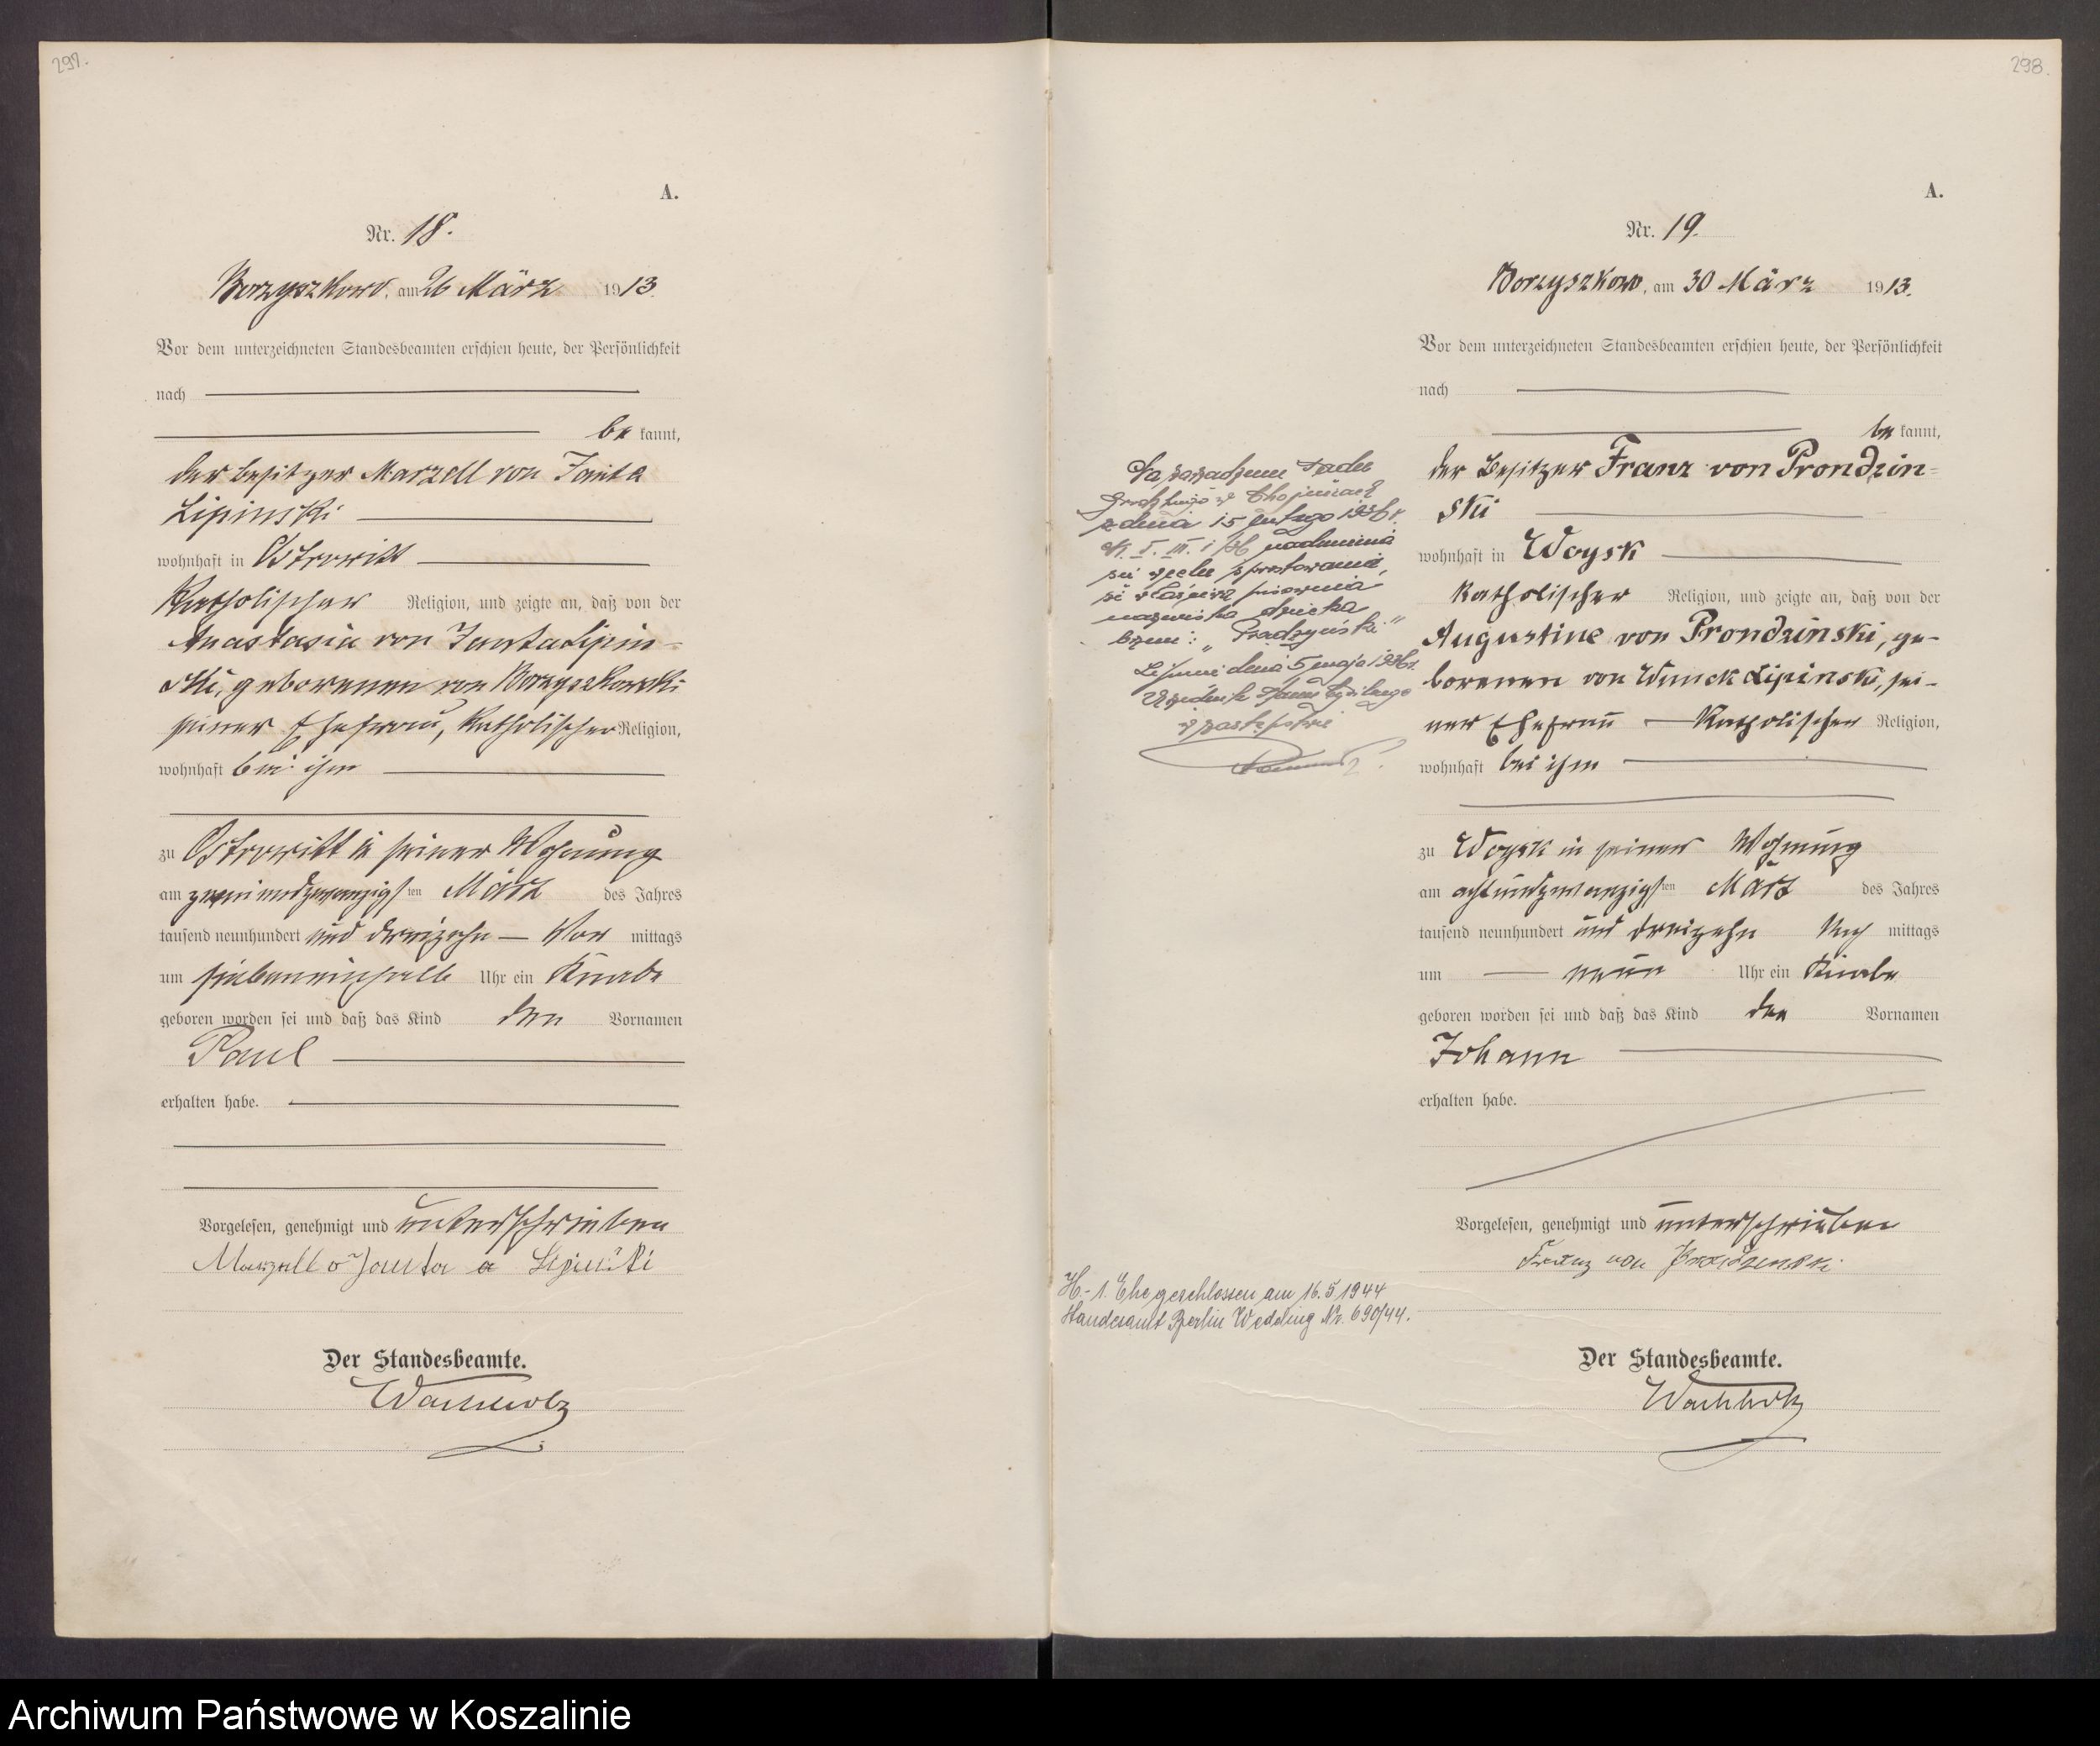 297.
A.
Nr. 18.
Borzyszkowo, am 26 März 1913.
Vor dem unterzeichneten Standesbeamten erschien heute, der Persönlichkeit
nach
be kannt,
der Besitzer Marzell von Janta
Lipinski
wohnhaft in Ostrowitt
Katholischer Religion, und zeigte an, daß von der
Anastasia von Janta Lipin-
ski, geborenen von Borzyszkowski
seiner Ehefrau, Katholischer Religion,
wohnhaft bei ihm
zu Ostrowitt in seiner Wohnung
am zweiundzwanzigsten März des Jahres
tausend neunhundert und dreizehn — Vor mittags
um siebeneinhalb Uhr ein Knabe
geboren worden sei und daß das Kind den Vornamen
Paul
erhalten habe.
Vorgelesen, genehmigt und unterschrieben
Marzell Janta Lipinski
Der Standesbeamte.
Wachholz
298.
A.
Nr. 19.
Borzyszkowo, am 30 März 1913.
Vor dem unterzeichneten Standesbeamten erschien heute, der Persönlichkeit
nach
be kannt,
der Besitzer Franz von Prondzin-
ski
wohnhaft in Woysk
Katholischer Religion, und zeigte an, daß von der
Augustine von Prondzinski, ge-
borenen von Lipinski, sei-
ner Ehefrau — Katholischer Religion,
wohnhaft bei ihm
zu Woysk in seiner Wohnung
am achtundzwanzigsten März des Jahres
tausend neunhundert und dreizehn Nach mittags
um — neun Uhr ein Knabe
geboren worden sei und daß das Kind den Vornamen
Johann
erhalten habe.
Vorgelesen, genehmigt und unterschrieben
Franz von Prondzinski
Der Standesbeamte.
Wachholz
Na zarządzenie Sądu
Grodzkiego w Chojnicach
z dnia 15 lutego 1936 r.
nadmienia
się celu sprostowania,
że właściwa pisownia
nazwiska dziecka
brzmi: „Prądzyński"
dnia 5 maja 1936 r.
Urzędnik Stanu Cywilnego
w zastępstwie
H.- 1. Ehe geschlossen am 16.5.1944
Standesamt Berlin Wedding Nr. 690/44.
Archiwum Państwowe w Koszalinie